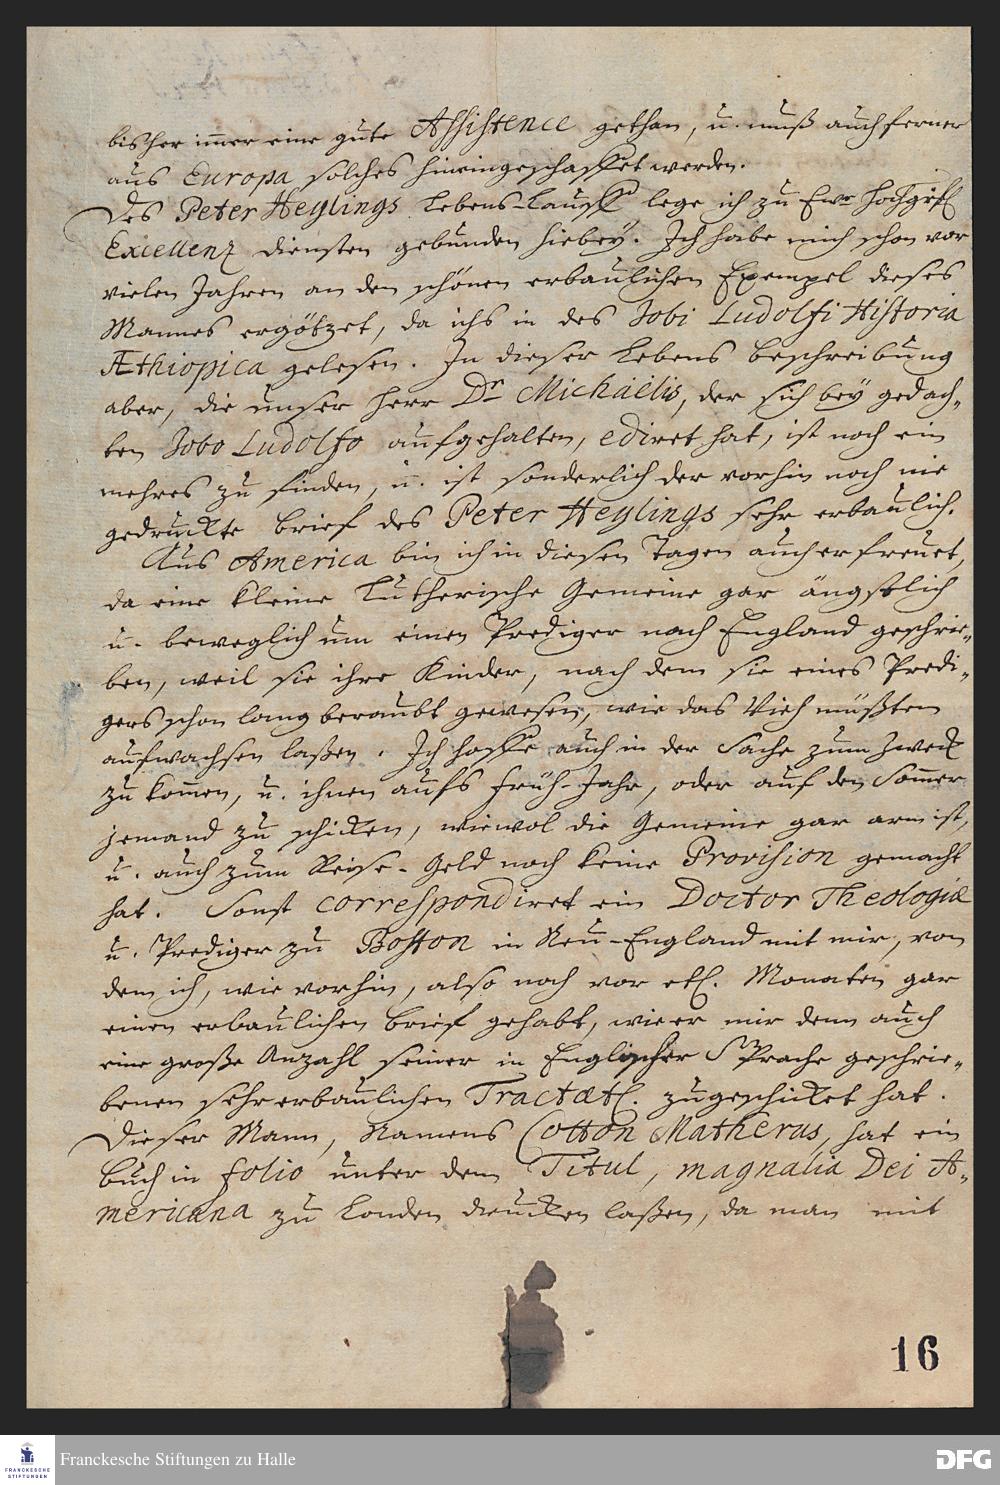 bisher im̄er eine gute Assistence gethan, u. muß auch ferner
aus Europa solches hineingeschaffet werden.
Des Peter Heylings Lebens-Lauff lege ich zu Ewr. Hochgräfl
Excellenz diensten gebunden hiebey. Ich habe mich schon vor
vielen Jahren an den schönen erbaulichen Exempel dieses
Mannes ergötzet, da ichs in des Jobi Ludolfi Historia
Æthiopica gelesen. In dieser Lebens beschreibung
aber, die unser Herr Dr Michaëlis, der sich bey gedach-
ten Jobo Ludolfo aufgehalten, ediret hat, ist noch ein
mehres zu finden, u. ist sonderlich der vorhin noch nie
gedruckte brief des Peter Heylings sehr erbaulich.
Aus America bin ich in diesen Tagen auch erfreuet,
da eine kleine Lutherische Gemeine gar ängstlich
u. beweglich um einen Prediger nach England geschrie-
ben, weil sie ihre Kinder, nach dem sie eines Predi-
gers schon lang beraubt gewesen, wie das Vieh müßten
aufwachsen laßen. Ich hoffe auch in der Sache zum Zweck
zu kom̄en, u. ihnen aufs Früh-Jahr, oder auf den Som̄er
jemand zu schicken, wiewol die Gemeine gar arm ist,
u. auch zum Reise-Geld noch keine Provision gemacht
hat. Sonst correspondiret ein Doctor Theologiæ
u. Prediger zu Boston in Neu-England mit mir, von
dem ich, wie vorhin, also noch vor etl. Monaten gar
einen erbaulichen brief gehabt, wie er mir denn auch
eine große Anzahl seiner in Englischer Sprache geschrie-
benen sehr erbaulichen Tractætl. zugeschicket hat.
Dieser Mann, Namens Cotton Matherus, hat ein
Buch in folio unter dem Titul, magnalia Dei A-
mericana zu Londen drucken laßen, da man mit
16
FRANCKESCHE
STIFTUNGEN
Franckesche Stiftungen zu Halle
DFG